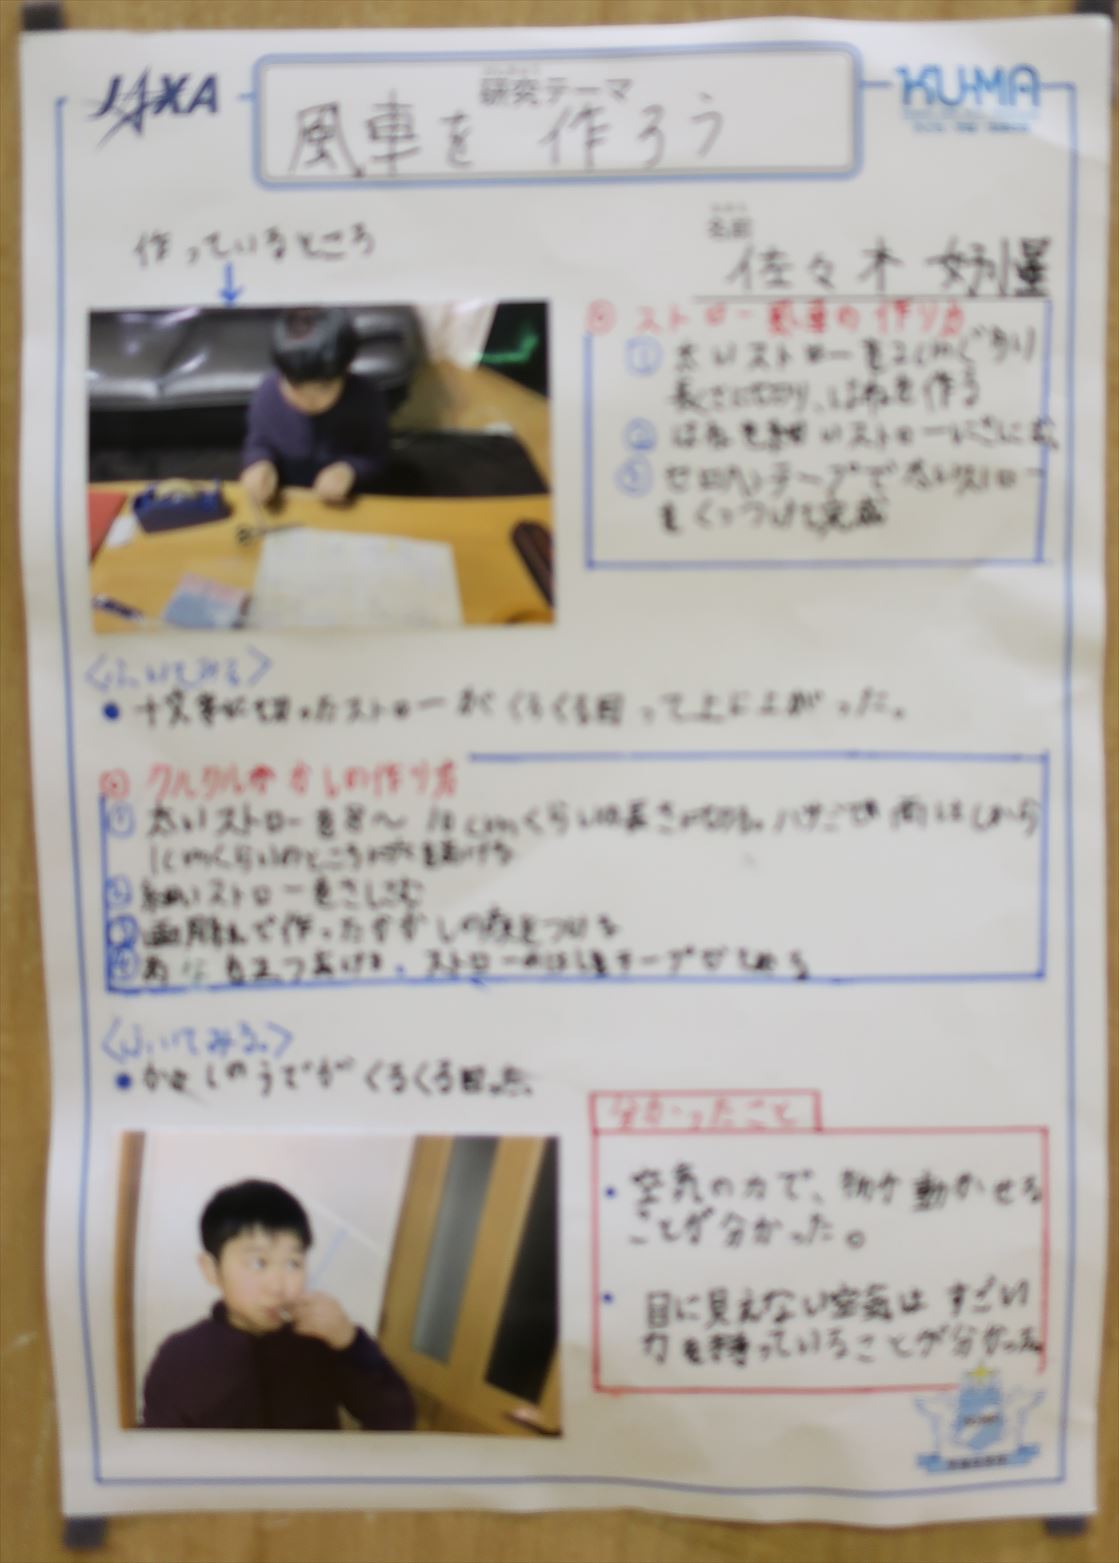 JAXA
研究テーマ
KU-MA
風車を作ろう
作っているところ
名前
佐々木
ストロー風車の作り方
① 太いストローを2cmぐらい
長さに切り、はねを作る
② はねを細いストローにさしこむ
③ セロハンテープで太いストロー
をくっつけて完成
〈ふいてみる〉
・十文字に切ったストローがくるくる回って上に上がった。
クルクルかかしの作り方
① 太いストローを8〜10cmくらいの長さに切る。ハサミで両はしから
1cmくらいのところに
② 細いストローをさしこむ
③ 画用紙で作ったかかしの
④ あなを2つあける。ストローのはしをテープでとめる
〈ふいてみる。〉
・かかしのうでがくるくる回った。
分かったこと
・空気の力で、物が動かせる
ことが分かった。
・目に見えない空気はすごい
力を持っていることが分かった